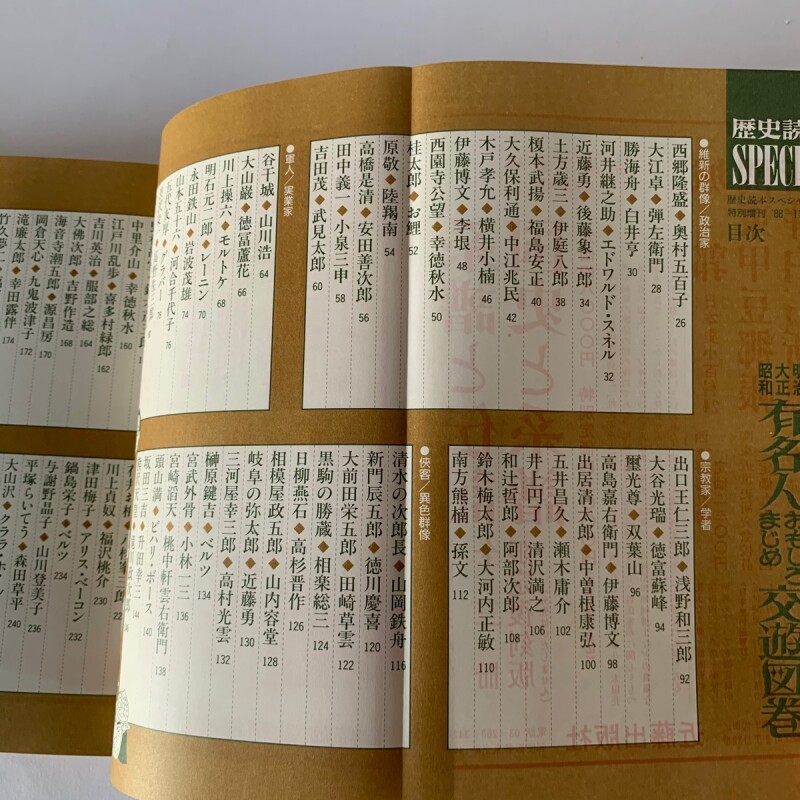 歴史読本
SPECIAL
歴史読本スペシャル
特別増刊 '88
目次
明治
大正
昭和
有名人
おもしろ
まじめ
交遊図巻
●維新の群像/政治家
西郷隆盛◆奥村五百子 26
大江卓◆弾左衛門 28
勝海舟◆白井亨 30
河井継之助◆エドワルド・スネル 32
近藤勇◆後藤象二郎 34
土方歳三◆伊庭八郎 38
榎本武揚◆福島安正 40
大久保利通◆中江兆民 42
木戸孝允◆横井小楠 46
伊藤博文◆李垠 48
西園寺公望◆幸徳秋水 50
桂太郎◆お鯉 52
原敬◆陸羯南 54
高橋是清◆安田善次郎 56
田中義一◆小泉三申 58
吉田茂◆武見太郎 60
●軍人/実業家
谷干城◆山川浩 64
大山巌◆徳富蘆花 66
川上操六◆モルトケ 68
明石元二郎◆レーニン 70
永田鉄山◆岩波茂雄 74
山本五十六◆河合千代子 76
グラバー 78
●宗教家/学者
出口王仁三郎◆浅野和三郎 92
大谷光瑞◆徳富蘇峰 94
璽光尊◆双葉山 96
高島嘉右衛門◆伊藤博文 98
出居清太郎◆中曽根康弘 100
五井昌久◆瀬木庸介 102
井上円了◆清沢満之 106
和辻哲郎◆阿部次郎 108
鈴木梅太郎◆大河内正敏 110
南方熊楠◆孫文 112
●侠客/異色群像
清水の次郎長◆山岡鉄舟 116
新門辰五郎◆徳川慶喜 120
大前田栄五郎◆田崎草雲 122
黒駒の勝蔵◆相楽総三 124
日柳燕石◆高杉晋作 126
相模屋政五郎◆山内容堂 128
岐阜の弥太郎◆近藤勇 130
三河屋幸三郎◆高村光雲 132
榊原鍵吉◆ベルツ 134
宮武外骨◆小林一三 136
宮崎滔天◆桃中軒雲右衛門 138
頭山満◆ビハリ・ボース 140
坂田三吉◆升田幸三 144
中里介山◆幸徳秋水 160
江戸川乱歩◆喜多村緑郎 162
吉川英治◆服部之総 164
大佛次郎◆吉野作造 168
海音寺潮五郎◆源昌房 170
岡倉天心◆九鬼波津子 172
滝廉太郎◆幸田露伴 174
竹久夢二
川上貞奴◆福沢桃介 230
津田梅子◆アリス・ベーコン 232
鍋島栄子◆ベルツ 234
与謝野晶子◆山川登美子 236
平塚らいてう◆森田草平 240
大山捨松◆クララ・ホイットニー
近藤出版社